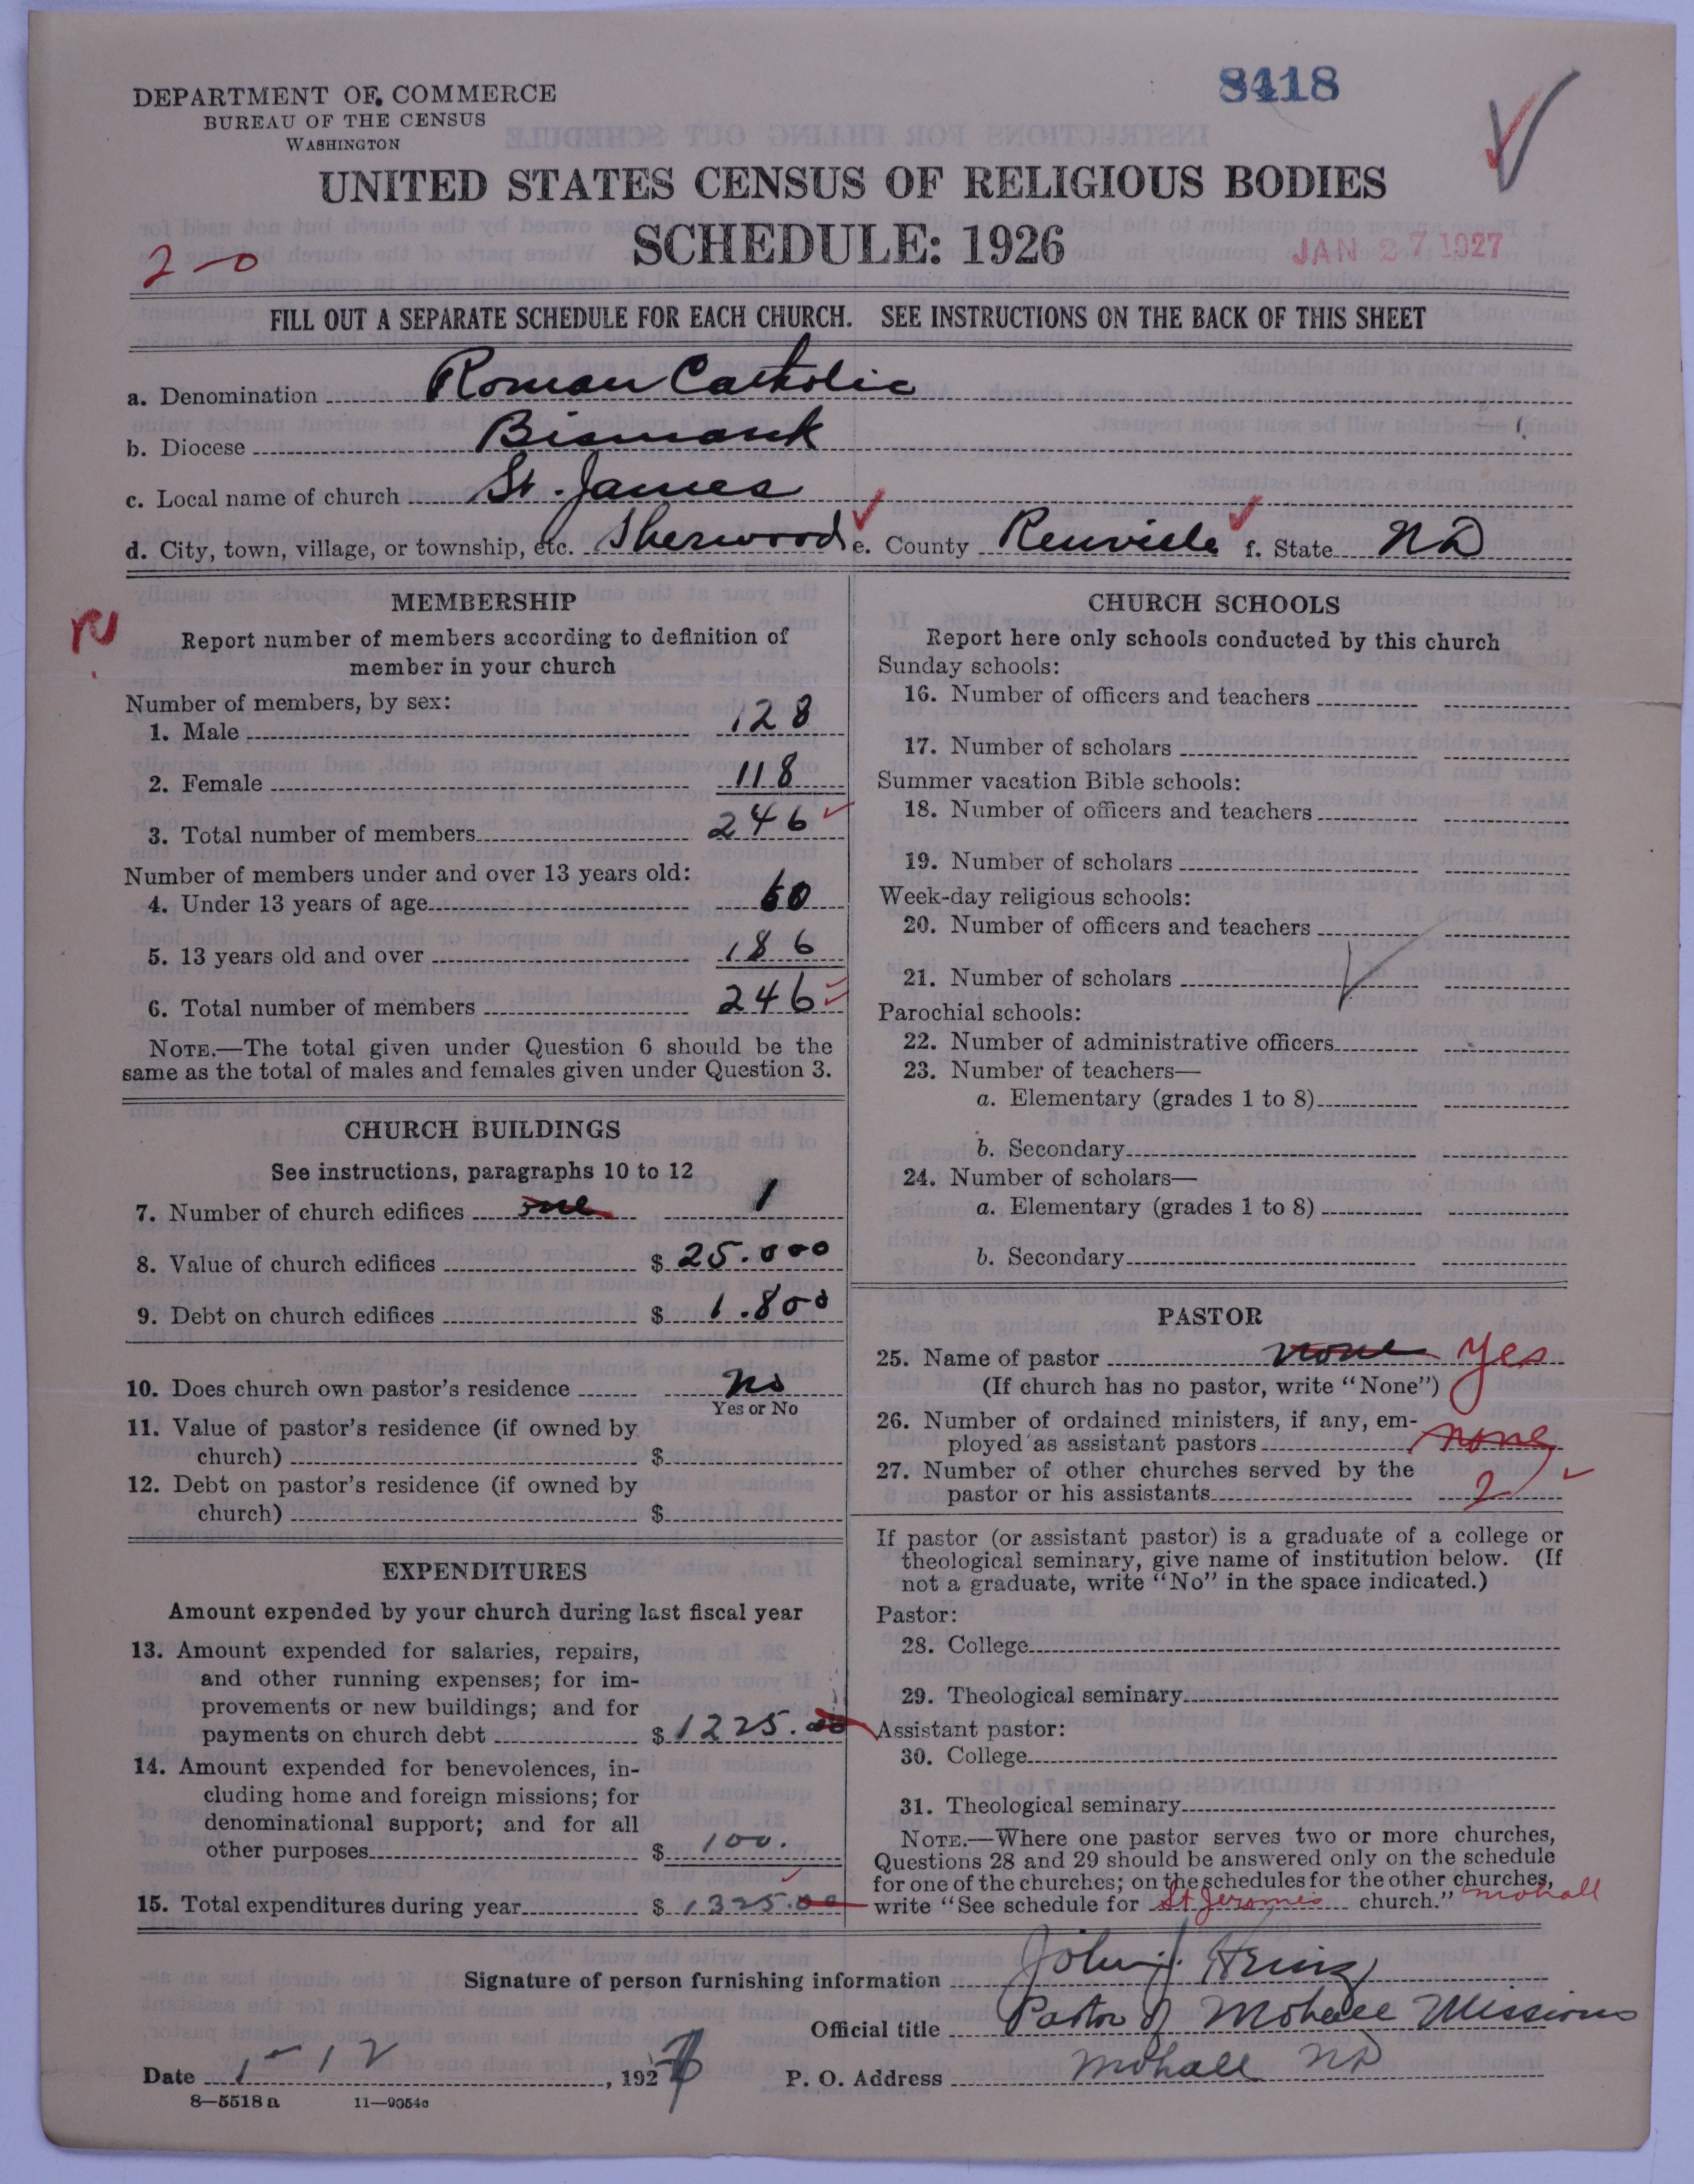 8418
DEPARTMENT OF COMMERCE
BUREAU OF THE CENSUS
WASHINGTON
UNITED STATES CENSUS OF RELIGIOUS BODIES
SCHEDULE: 1926
JAN 27 1927
2-0
FILL OUT A SEPARATE SCHEDULE FOR EACH CHURCH. SEE INSTRUCTIONS ON THE BACK OF THIS SHEET
a. Denomination Roman Catholic
b. Diocese Bismarck
c. Local name of church St. James
d. City, town, village, or township, etc. Sherwood e. County Renville f. State ND
MEMBERSHIP
Report number of members according to definition of
member in your church
Number of members, by sex:
1. Male 128
2. Female 118
3. Total number of members 246
Number of members under and over 13 years old:
4. Under 13 years of age 60
5. 13 years old and over 186
6. Total number of members 246
NOTE.—The total given under Question 6 should be the
same as the total of males and females given under Question 3.
CHURCH BUILDINGS
See instructions, paragraphs 10 to 12
7. Number of church edifices one 1
8. Value of church edifices $ 25.000
9. Debt on church edifices $ 1.800
10. Does church own pastor's residence No
Yes or No
11. Value of pastor's residence (if owned by
church) $
12. Debt on pastor's residence (if owned by
church) $
EXPENDITURES
Amount expended by your church during last fiscal year
13. Amount expended for salaries, repairs,
and other running expenses; for im-
provements or new buildings; and for
payments on church debt $ 1225.00
14. Amount expended for benevolences, in-
cluding home and foreign missions; for
denominational support; and for all
other purposes $ 100.
15. Total expenditures during year $ 1325.00
CHURCH SCHOOLS
Report here only schools conducted by this church
Sunday schools:
16. Number of officers and teachers
17. Number of scholars
Summer vacation Bible schools:
18. Number of officers and teachers
19. Number of scholars
Week-day religious schools:
20. Number of officers and teachers
21. Number of scholars
Parochial schools:
22. Number of administrative officers
23. Number of teachers—
a. Elementary (grades 1 to 8)
b. Secondary
24. Number of scholars—
a. Elementary (grades 1 to 8)
b. Secondary
PASTOR
25. Name of pastor none yes
(If church has no pastor, write "None")
26. Number of ordained ministers, if any, em-
ployed as assistant pastors none
27. Number of other churches served by the
pastor or his assistants 2
If pastor (or assistant pastor) is a graduate of a college or
theological seminary, give name of institution below. (If
not a graduate, write "No" in the space indicated.)
Pastor:
28. College
29. Theological seminary
Assistant pastor:
30. College
31. Theological seminary
NOTE.—Where one pastor serves two or more churches,
Questions 28 and 29 should be answered only on the schedule
for one of the churches; on the schedules for the other churches,
write "See schedule for St Jeromes church." Mohall
Signature of person furnishing information John J.
Official title Pastor of Mohall Missions
Date 1-12, 1927 P. O. Address Mohall ND
8—5518 a 11—9054c